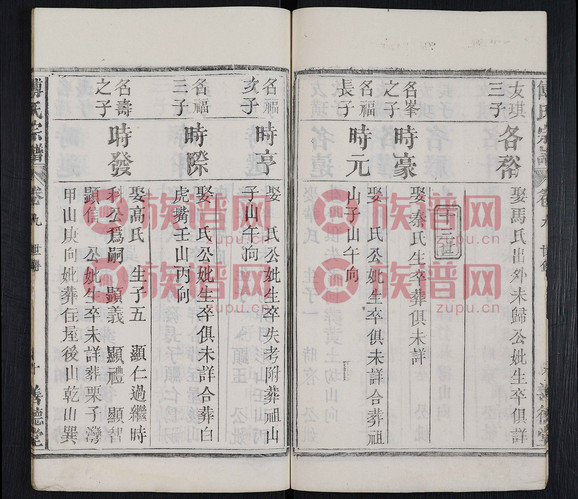 傅氏宗譜
卷九
世
善德堂
友琪
三子
各裕
娶馬氏出外未歸公妣生卒俱詳
名峯
之子
時豪
娶秦氏生卒葬俱未詳
名福
長子
時元
娶 氏公妣生卒俱未詳合葬祖
山子山午向
名福
次子
時亨
娶 氏公妣生卒失考附葬祖山
子山午向
名福
三子
時際
娶 氏公妣生卒俱未詳合葬白
虎嘴壬山丙向
名壽
之子
時發
娶高氏 生子五 顯仁過繼時
利公爲嗣 顯義 顯禮 顯智
顯信 公妣生卒未詳葬栗子灣
甲山庚向妣葬住屋後山乾山巽
傅氏宗譜
卷九
世
十
善德堂
族谱网
zupu.cn
族谱网
zupu.cn
族谱网
zupu.cn
族谱网
zupu.cn